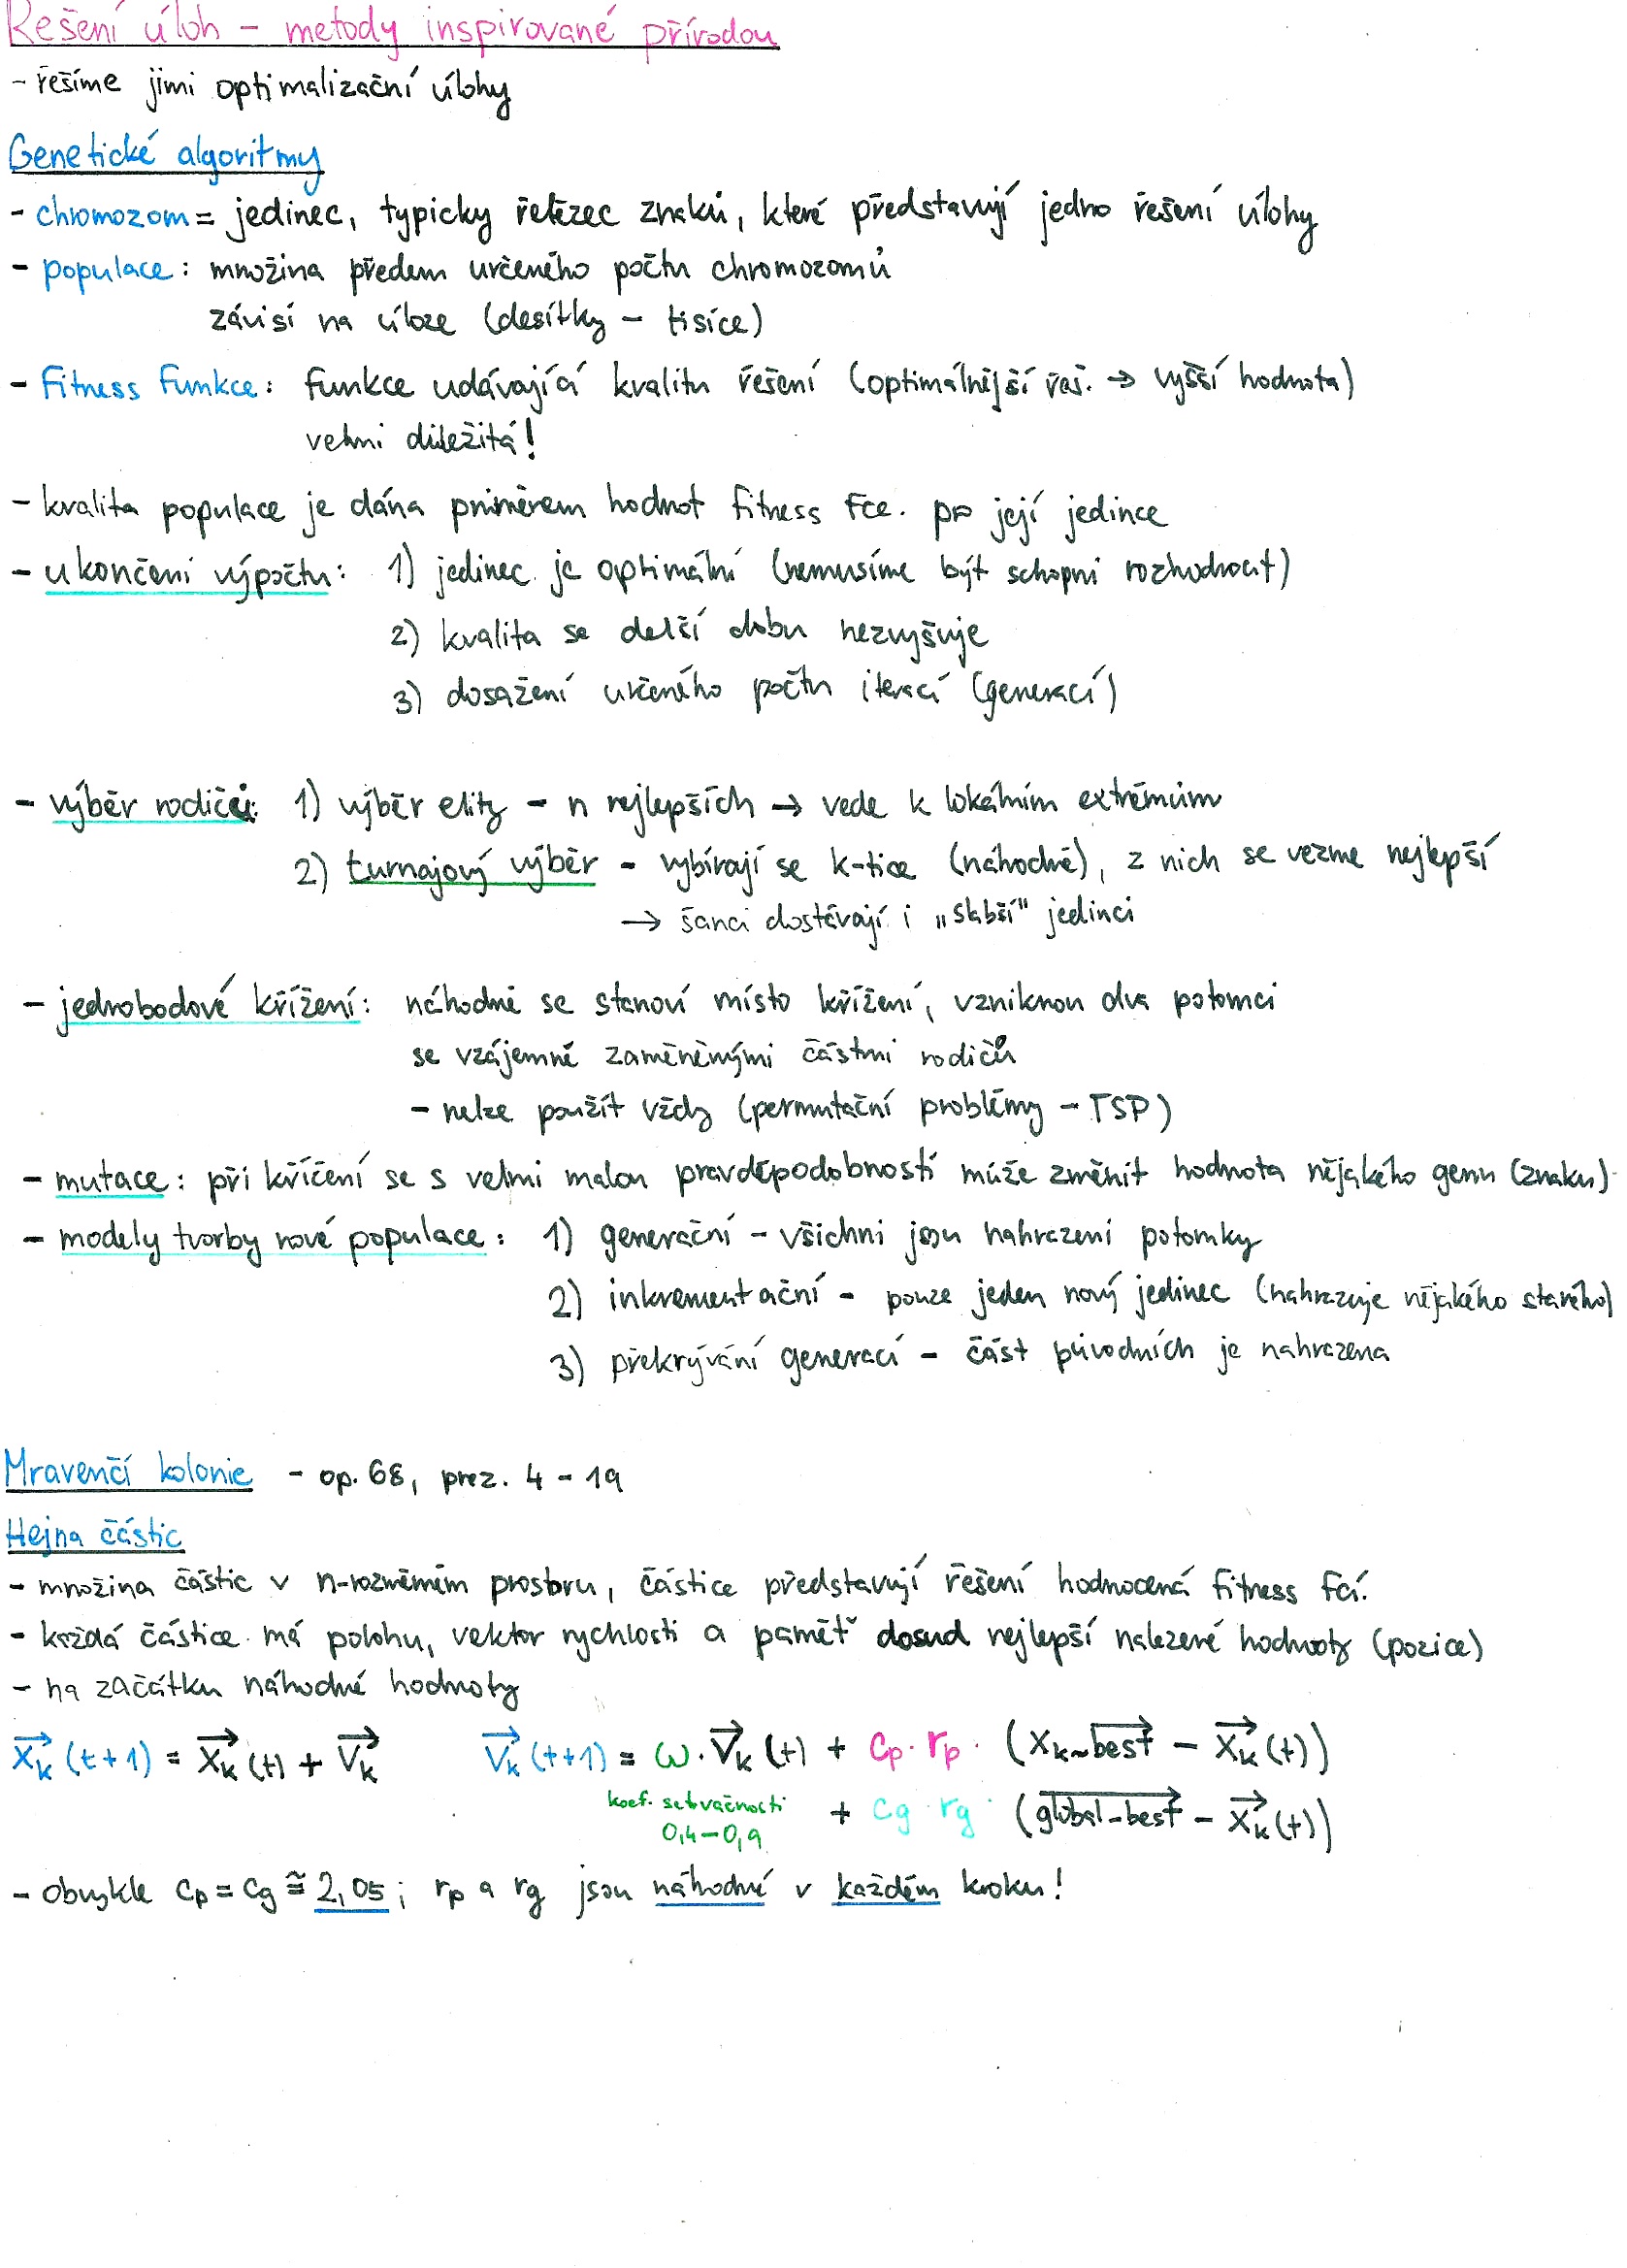 Řešení úloh - metody inspirované přírodou
- řešíme jimi optimalizační úlohy
Genetické algoritmy
- chromozom = jedinec, typicky řetězec znaků, které představují jedno řešení úlohy
- populace: množina předem určeného počtu chromozomů
závisí na úloze (desítky - tisíce)
- Fitness Funkce: funkce udávající kvalitu řešení (optimálnější řeš. → vyšší hodnota)
velmi důležitá!
- kvalita populace je dána průměrem hodnot fitness fce. pro její jedince
- ukončení výpočtu: 1) jedinec je optimální (nemusíme být schopni rozhodnout)
2) kvalita se delší dobu nezvyšuje
3) dosažení určeného počtu iterací (generací)
- výběr rodičů: 1) výběr elity - n nejlepších → vede k lokálním extrémům
2) turnajový výběr - vybírají se k-tice (náhodně), z nich se vezme nejlepší
→ šanci dostávají i „slabší" jedinci
- jednobodové křížení: náhodně se stanoví místo křížení, vzniknou dva potomci
se vzájemně zaměněnými částmi rodičů
- nelze použít vždy (permutační problémy - TSP)
- mutace: při kříčení se s velmi malou pravděpodobností může změnit hodnota nějakého genu (znaku)
- modely tvorby nové populace: 1) generační - všichni jsou nahrazeni potomky
2) inkrementační - pouze jeden nový jedinec (nahrazuje nějakého starého)
3) překrývání generací - část původních je nahrazena
Mravenčí kolonie - op. 68, prez. 4 - 19
Hejna částic
- množina částic v n-rozměrném prostoru, částice představují řešení hodnocená fitness fcí.
- každá částice má polohu, vektor rychlosti a paměť dosud nejlepší nalezené hodnoty (pozice)
- na začátku náhodné hodnoty
x⃗k (t+1) = x⃗k (t) + v⃗k v⃗k (t+1) = ω · v⃗k (t) + cp · rp · (xk-best - x⃗k (t))
koef. setrvačnosti + cg · rg · (global-best - x⃗k (t))
0,4 - 0,9
- obvykle cp = cg ≅ 2,05; rp a rg jsou náhodné v každém kroku!